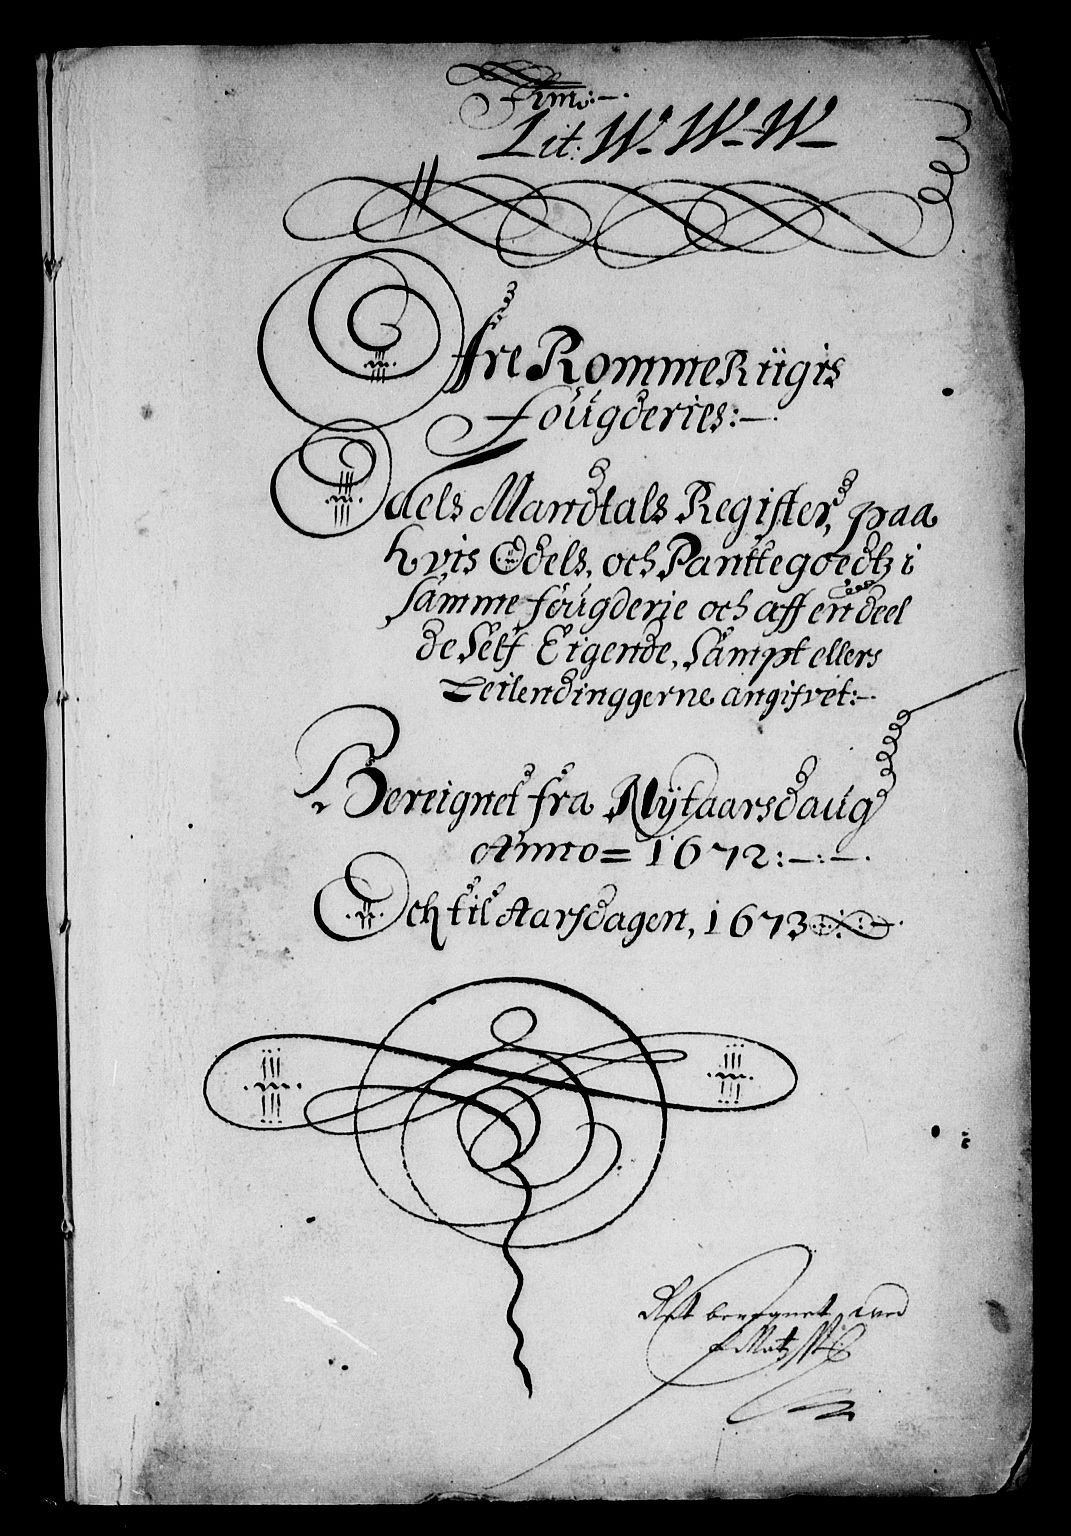 Lit: W. W. W.
Øfre RommeRiigis
fougderies:—.
Odels Mandtals Register, paa
hvis Odels, och Panttegoedtz i
Samme fougderie och aff en deel
de Self Eigende, Sampt ellers
Leilendinggerne angifvet:—.
Bereignet fra Nytaarsdaug
Anno= 1672:—.—.
Och til Aarsdagen, 1673